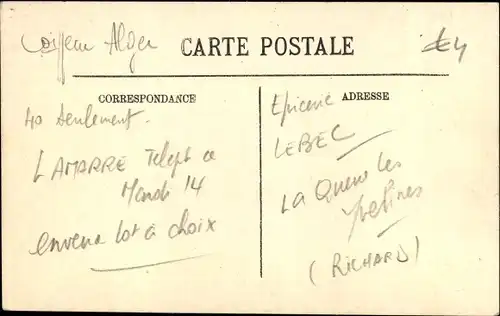 Coiffeur Alger
£4
CARTE POSTALE
CORRESPONDANCE
40 seulement.
LAMARRE Teleph ce
Mardi 14
enverra lot à choix
Epicerie ADRESSE
LEBEL
La Queue les
Yvelines
(RICHARD)